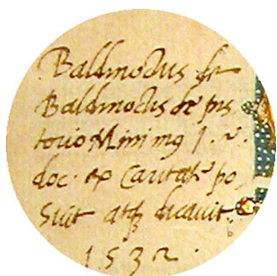 Baldinoctus de
Baldinoctis de pis
torio Minimꝰ J. V.
doc. ex Caritate po
suit atqꝫ dicavit
1532.